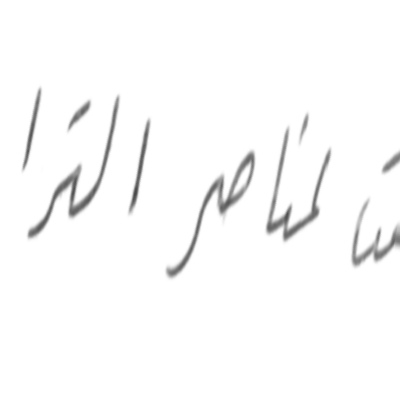 لعناصر الترا